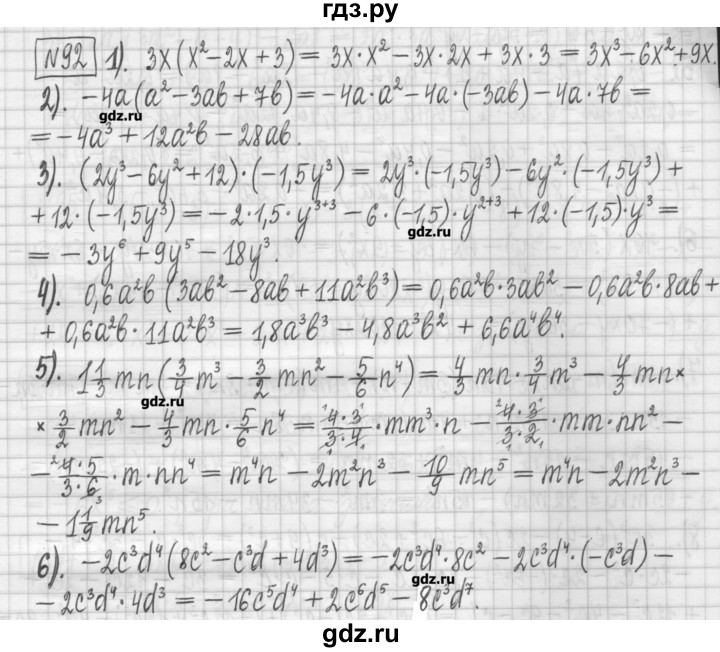 гдз.ру
№92 1). 3x(x²−2x+3) = 3x·x²−3x·2x+3x·3 = 3x³−6x²+9x.
2). −4a(a²−3ab+7b) = −4a·a²−4a·(−3ab)−4a·7b =
gdz.ru
= −4a³+12a²b−28ab.
3). (2y³−6y²+12)·(−1,5y³) = 2y³·(−1,5y³)−6y²·(−1,5y³)+
+12·(−1,5y³) = −2·1,5·y³⁺³−6·(−1,5)·y²⁺³+12·(−1,5)·y³ =
gdz.ru
= −3y⁶+9y⁵−18y³.
4). 0,6a²b(3ab²−8ab+11a²b³) = 0,6a²b·3ab²−0,6a²b·8ab+
+0,6a²b·11a²b³ = 1,8a³b³−4,8a³b²+6,6a⁴b⁴.
5). 1 1/3 mn(3/4 m³ − 3/2 mn² − 5/6 n⁴) = 4/3 mn · 3/4 m³ − 4/3 mn ×
gdz.ru
× 3/2 mn² − 4/3 mn · 5/6 n⁴ = 4·3/3·4 · mm³·n − 4·3/3·2 · mm·nn² −
− 4·5/3·6 · m·nn⁴ = m⁴n − 2m²n³ − 10/9 mn⁵ = m⁴n − 2m²n³ −
− 1 1/9 mn⁵.
6). −2c³d⁴(8c²−c³d+4d³) = −2c³d⁴·8c²−2c³d⁴·(−c³d)−
gdz.ru
−2c³d⁴·4d³ = −16c⁵d⁴+2c⁶d⁵−8c³d⁷.
gdz.ru